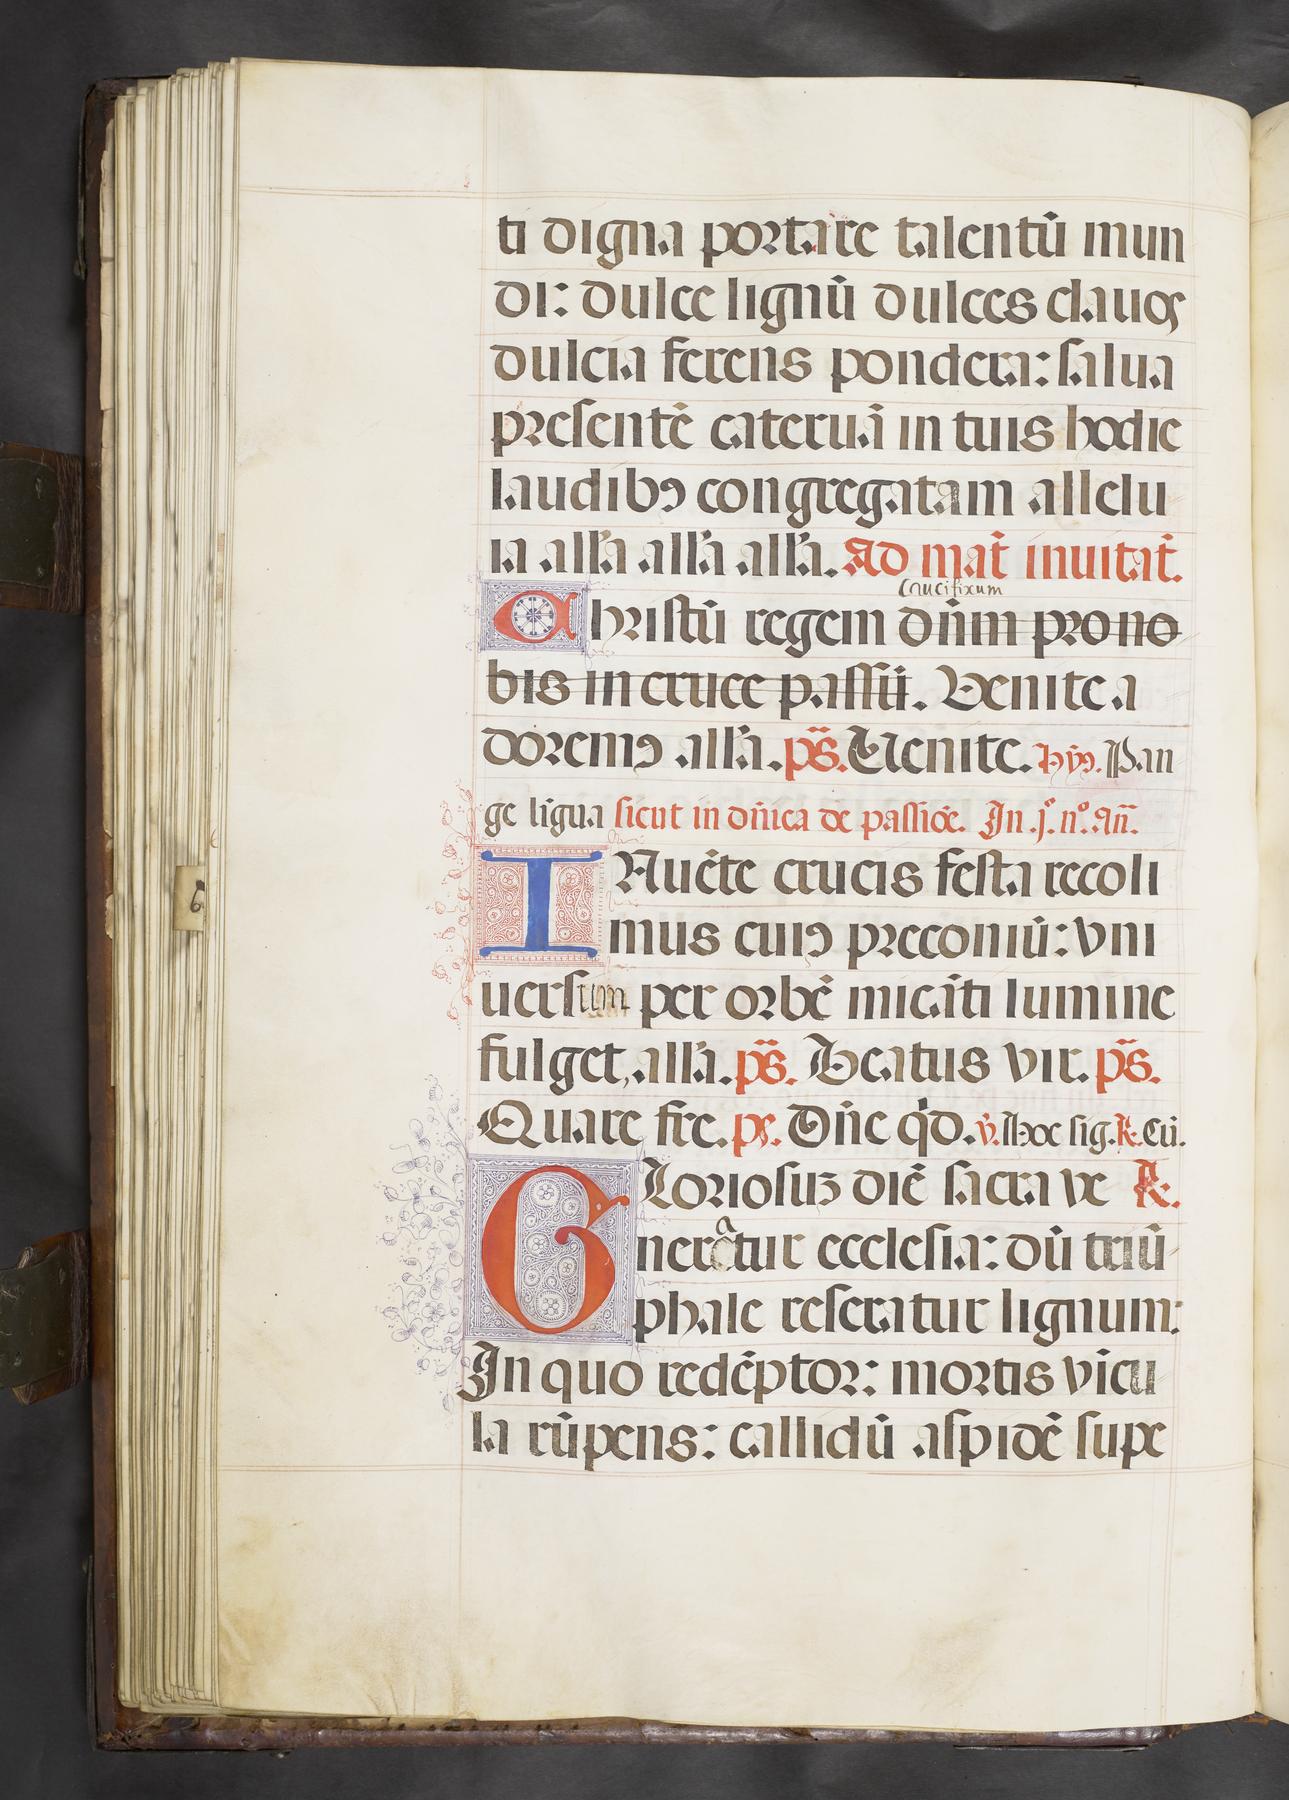 ti digna portare talentū mun
di: dulce lignū dulces clauos
dulcia ferens pondera: salua
presentē cateruā in tuis hodie
laudibꝯ congregatam allelu
ia all'a all'a all'a. Ad mat̄ inuitat̄.
Crucifixum
Christū regem dn̄m pro no
bis in cruce passū. Venite a
doremꝯ all'a. ps̄. Uenite. Hyꝯ. Pan
ge līgua sicut in dn̄ica de passiōe. In .j.º n.º an̄.
INuēte crucis festa recoli
mus cuiꝯ preconiū: vni
uersum per orbē micāti lumine
fulget, all'a. ps̄. Beatus vir. ps̄.
Quare fre. ps. Dn̄e q'd. v̄. Hoc sig. R. Cū.
GLoriosuz diē sacra ve R.
neratur ecclesia: dū triū
phale reseratur lignum:
In quo redēptor: mortis vīcu
la rūpens: callidū aspidē supe
6